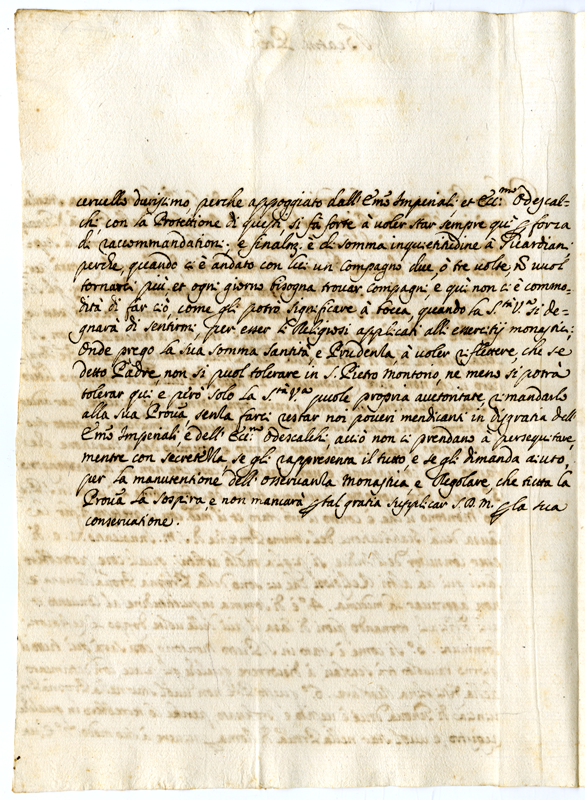 cervello durissimo perche appoggiato dall' Emo Imperiali et Ecc.mo Odescal-
chi con la Protettione di questi si fà forte à voler star sempre qui p forza
di raccommandationi: e finalm. è di somma inquietudine à Guardiani
perche, quando ci è andato con lui un Compagno due, ò tre volte, nõ vuol
tornarci più et ogni giorno bisogna trovar Compagni, e qui non ci è commo-
dità di far ciò, come gli potrò significare à bocca, quando la S.tà V.ra si de-
gnarà di sentirmi, per esser li Religiosi applicati all' essercitij monastici;
Onde prego la sua somma Santità e Prudenza, à voler riflettere, che se
detto Padre non si puol tolerare in S. Pietro Montorio, ne meno si potrà
tolerar qui: e però solo la S.tà V.ra puole propria auctoritate rimandarlo
alla sua Prov.a senza farci restar noi poveri mendicanti in disgratia dell'
Emo Imperiali, e dell' Ecc.mo Odescalchi, acciò non ci prendano à perseguitare,
mentre con secretezza se gli rappresenta il tutto, e se gli dimanda aiuto,
per la manutentione dell' osservanza Monastica e Regolare, che tutta la
Prov.a la sospira, e non mancarà p tal gratia supplicar S. D. M. p la sua
conservatione.